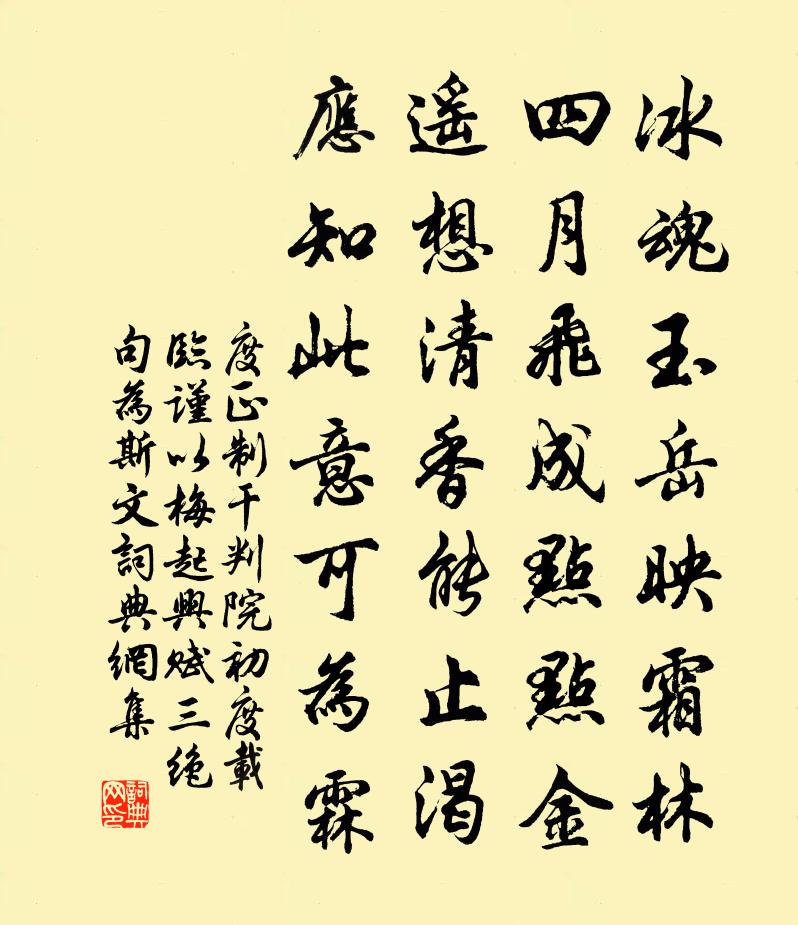 冰魂玉岳映霜林
四月飛成點點金
遥想清香能止渴
應知此意可為霖
度正制干判院初度載
臨謹以梅起興賦三絶
句為斯文詞典網集
詞典網印